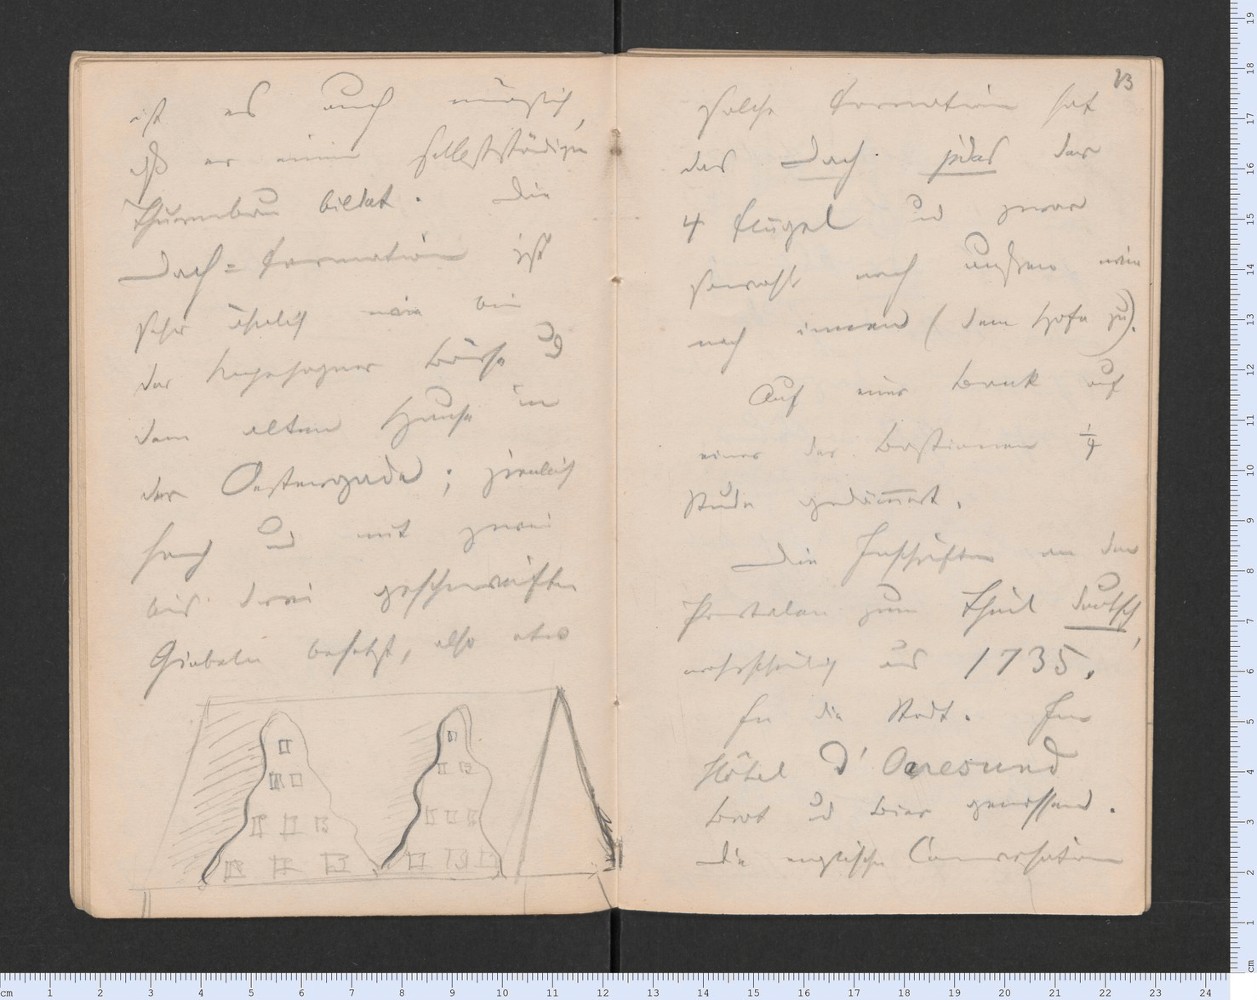 ist es auch möglich,
daß er einen selbstständigen
Thurmbau bildet. Die
Dach=Formation ist
sehr ähnlich wie bei
der Kopenhagner Börse u
dem alten Hause in
der Oestergade; ziemlich
hoch und mit zwei
bis drei geschweiften
Giebeln besetzt, also etwa
13
Solche Formation hat
das Dach jedes der
4 Flügel und zwar
sowohl nach außen wie
nach innen (dem Hofe zu).
Auf einer Bank auf
einer der Bastionen 1/4
Stunde gedämmert.
Die Inschriften an den
Portalen zum Theil deutsch,
wahrscheinlich aus 1735.
In die Stadt. Im
Hôtel d'Oeresund
Brot und Bier genossen.
Die englische Conversation